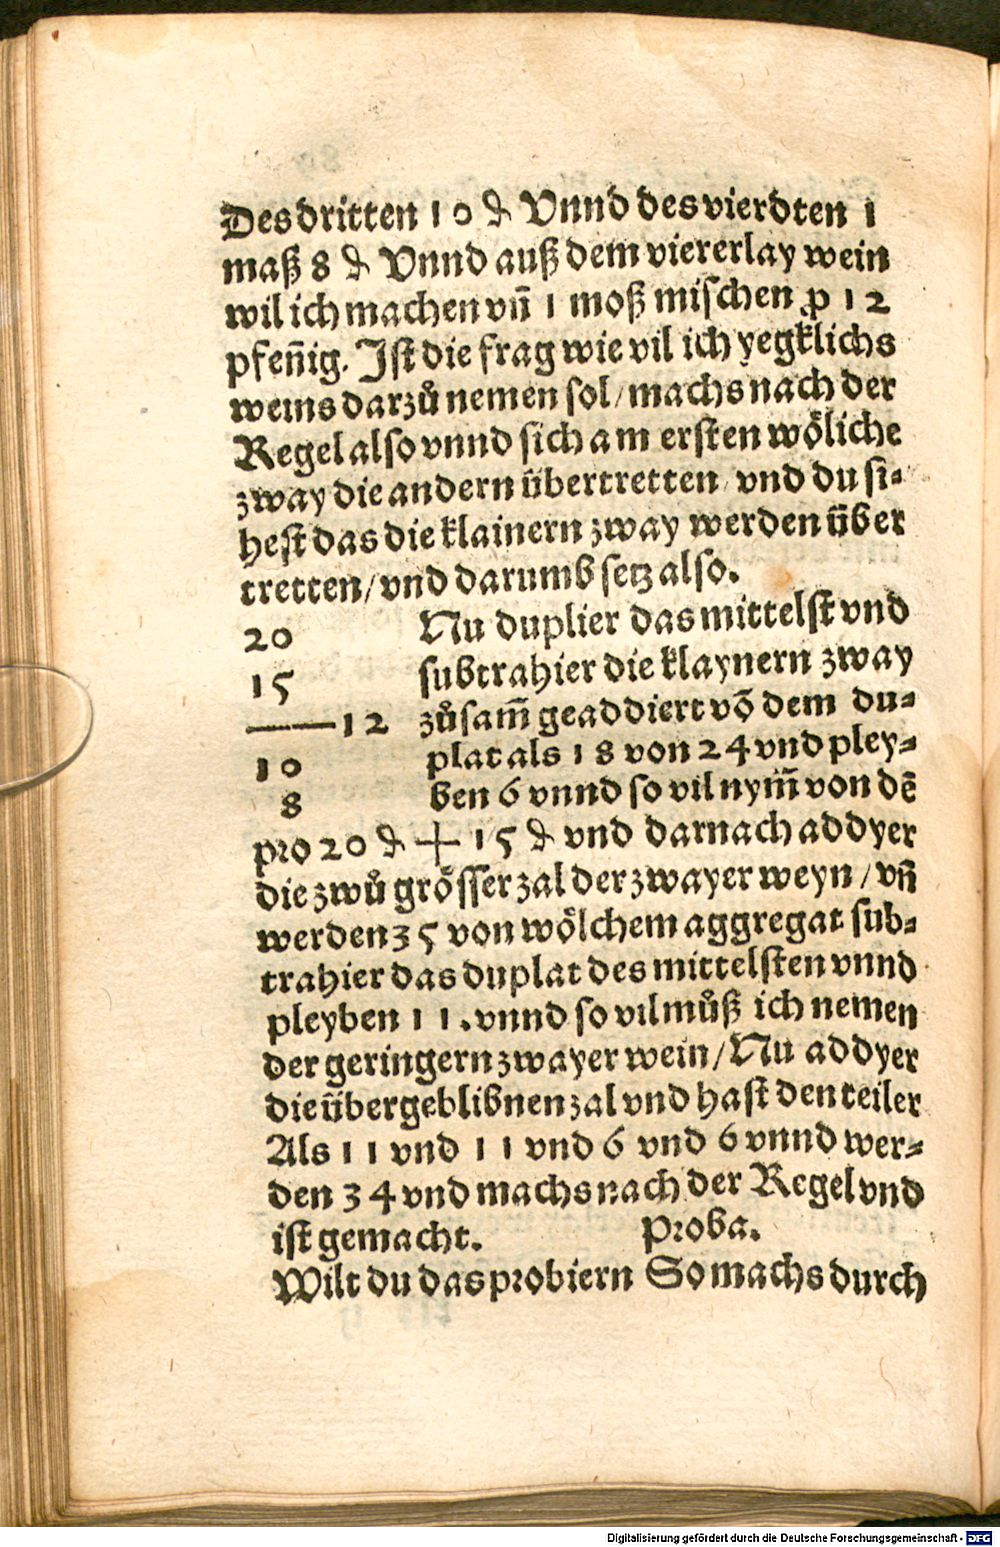 Des dritten 10 ₰ Vnnd des vierdten 1
maß 8 ₰ Vnnd auß dem viererlay wein
wil ich machen vn̄ 1 moß mischen ꝓ 12
pfen̄ig. Ist die frag wie vil ich yegklichs
weins darzů nemen sol / machs nach der
Regel also vnnd sich am ersten woͤliche
zway die andern uͤbertretten / vnd du si⸗
hest das die klainern zway werden uͤber
tretten / vnd darumb setz also.
20 Nu duplier das mittelst vnd
15 subtrahier die klaynern zway
——12 zůsam̄ geaddiert vō dem du⸗
10 plat als 18 von 24 vnd pley⸗
8 ben 6 vnnd so vil nym̄ von dē
pro 20 ₰ + 15 ₰ vnd darnach addyer
die zwů groͤsser zal der zwayer weyn / vn̄
werden 35 von woͤlchem aggregat sub⸗
trahier das duplat des mittelsten vnnd
pleyben 11. vnnd so vil můß ich nemen
der geringern zwayer wein / Nu addyer
die uͤbergeblibnen zal vnd hast den teiler
Als 11 vnd 11 vnd 6 vnd 6 vnnd wer⸗
den 34 vnd machs nach der Regel vnd
ist gemacht. Proba.
Wilt du das probiern So machs durch
Digitalisierung gefördert durch die Deutsche Forschungsgemeinschaft - DFG